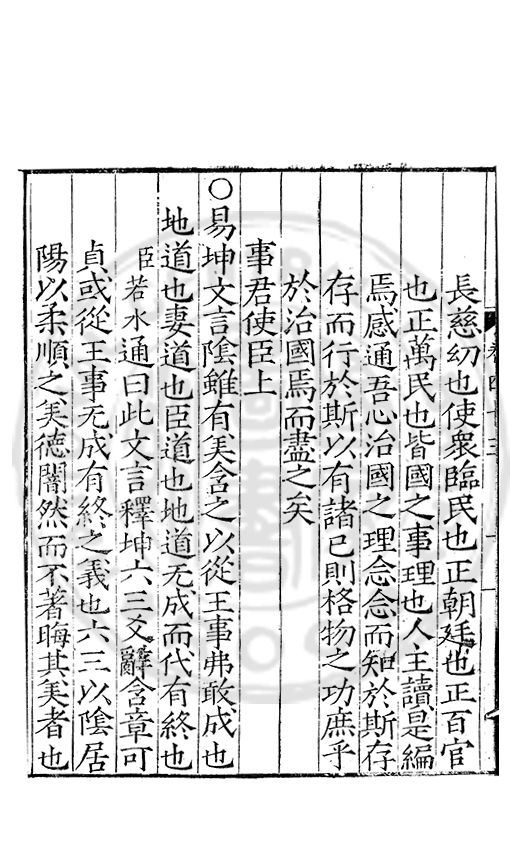 長慈幼也使衆臨民也正朝廷也正百官
也正萬民也皆國之事理也人主讀是編
焉感通吾心治國之理念念而知於斯存
存而行於斯以有諸已則格物之功庶乎
於治國焉而盡之矣
事君使臣上
○易坤文言陰雖有美含之以從王事弗敢成也
地道也妻道也臣道也地道无成而代有終也
臣若水通曰此文言釋坤六三爻辭含章可
貞或從王事无成有終之義也六三以陰居
陽以柔順之美德闇然而不著晦其美者也